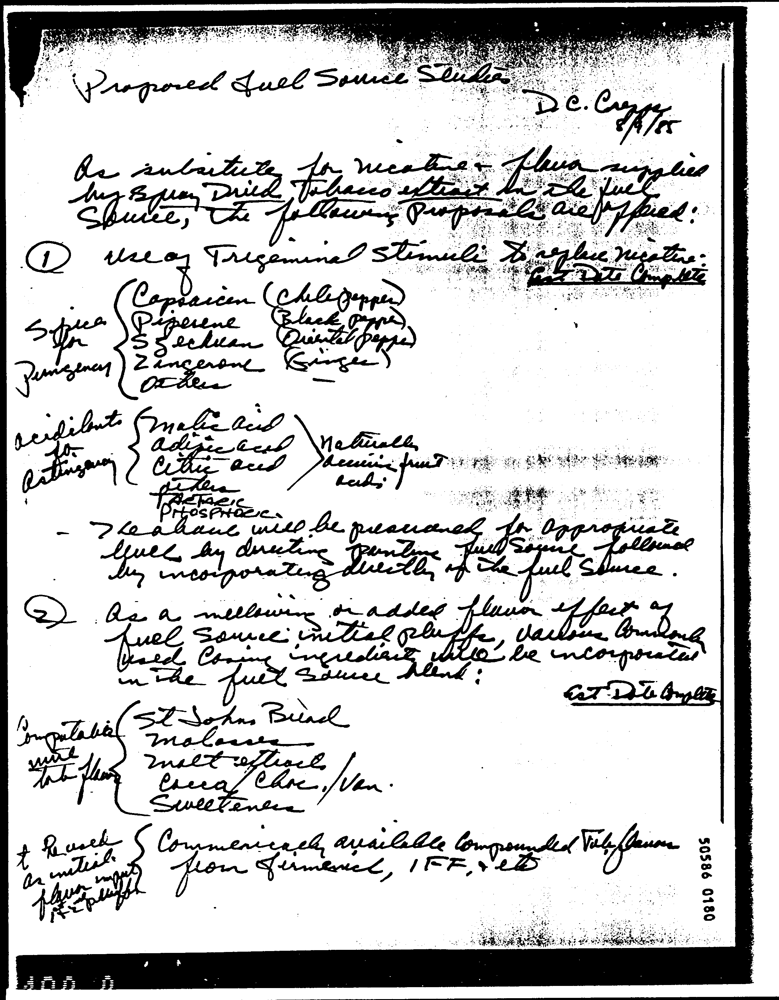 Proposed Fuel Source Studies
D. C. Crepps
8/9/85
As substitutes for nicotine + flavor supplied
by Spray Dried Tobacco extract in the fuel
Source, the following Proposals are offered:
① Use of Trigeminal Stimuli to replace nicotine:
Est Date Complete
Spices for Pungency
Capsaicin (Chile pepper)
Piperene (Black Pepper)
Szechuan (Oriental Pepper)
Zingerone (Ginger)
Others
Acidilants for Astringency
Malic Acid
Adipic acid
Citric acid
others
PHOSPHORIC
Naturally
occurring fruit
acids
- The above will be prescreened for appropriate
level by directing fuel Source followed
by incorporating directly of the fuel Source.
② As a mellowing or added flavor effect of
fuel Source initial pluffs, various commonly
used Casing ingredients will be incorporated
in the fuel Source blend:
Est Date Complete
Computable with tob flavor
St Johns Bread
Molasses
Malt extracts
Cocoa / Choc. / Van.
Sweeteners
be used
as initial
flavor input
Commericaly available Compounded Tob flavors
from Firmenich, IFF, + etc
50586 0180